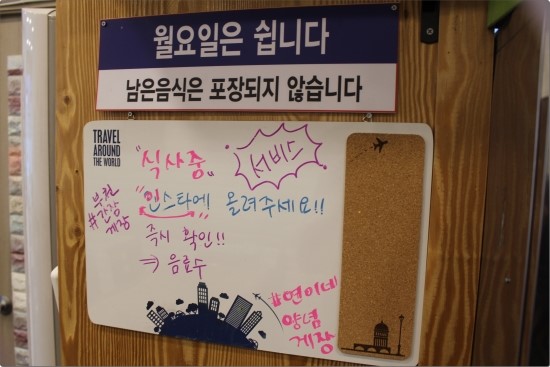 월요일은 쉽니다
남은음식은 포장되지 않습니다
TRAVEL
AROUND
THE WORLD
"식사중"
서비스
부천
#간장
게장
"인스타에" 올려주세요!!
즉시 확인!!
⇒ 음료수
#연이네
양념
게장